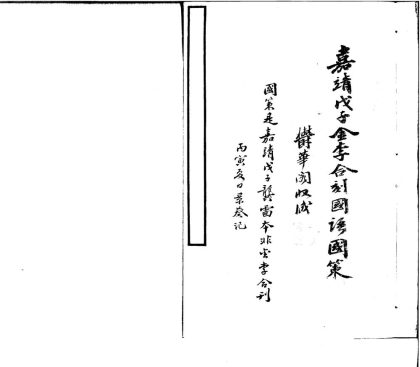 嘉靖戊子金李合刻國語國策
鬱華閣收藏
國策是嘉靖戊子龔雷本非金李合刊
丙寅夏日景葵記